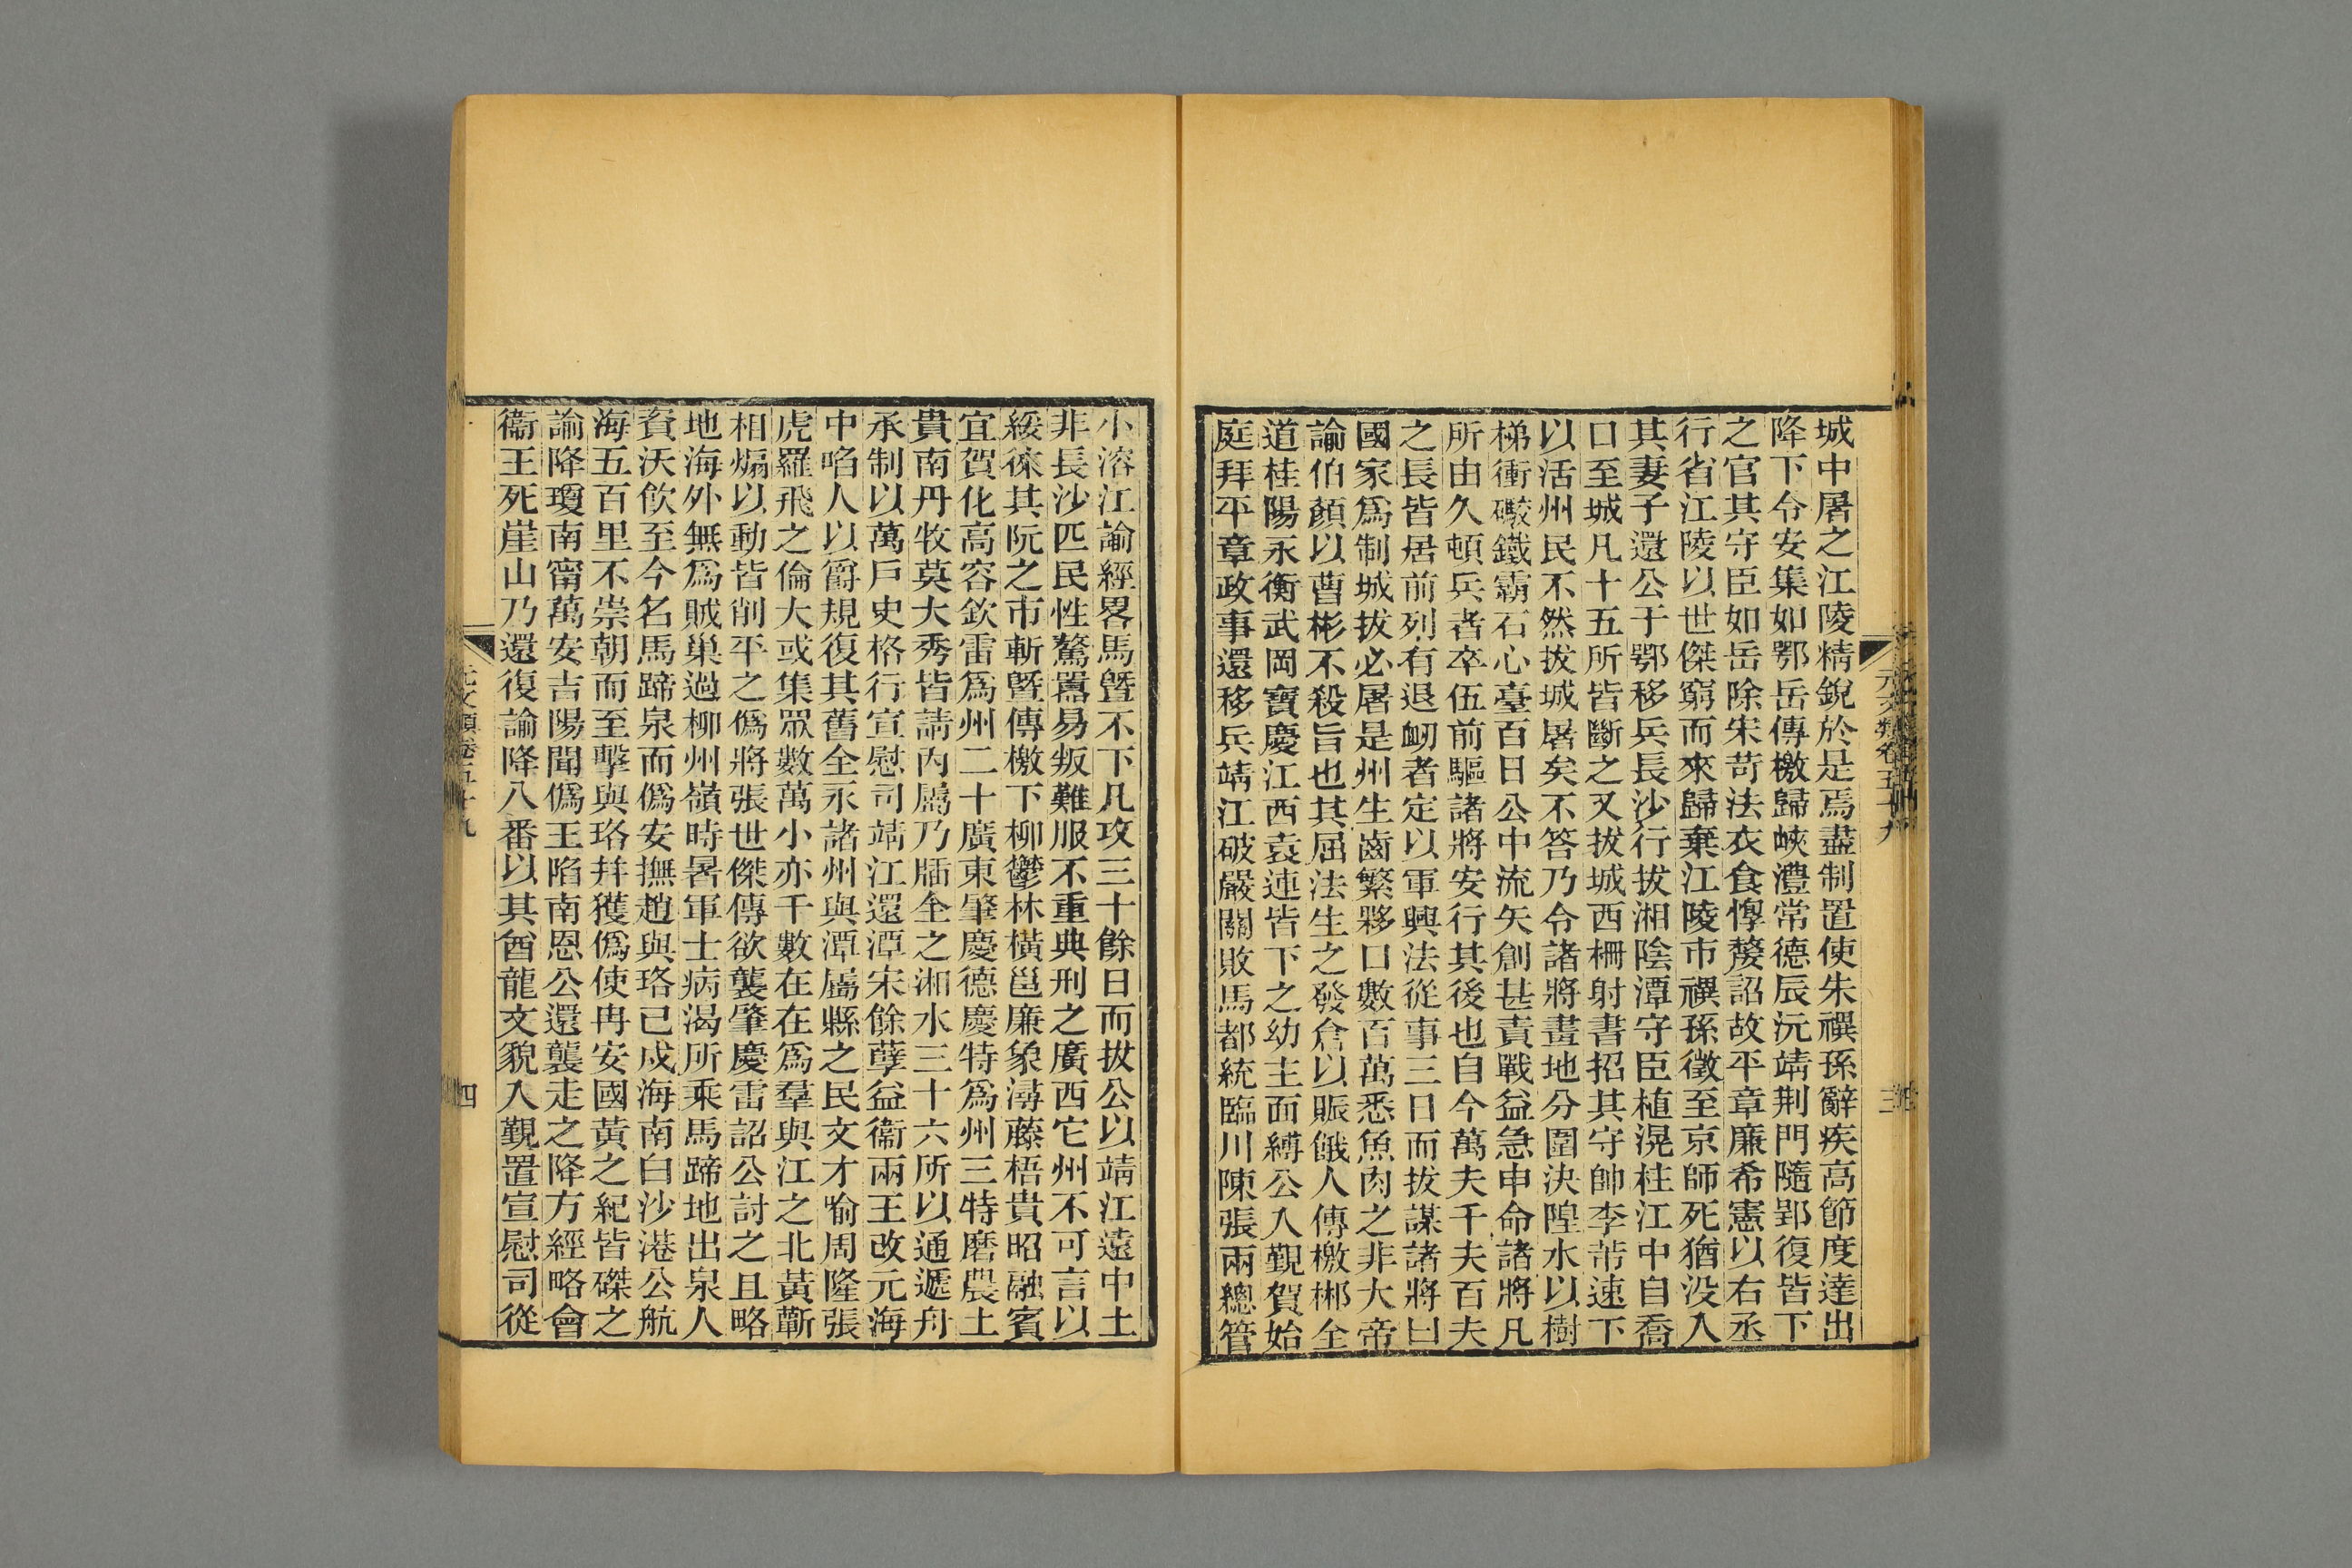 城中屠之江陵精銳於是焉盡制置使朱禩孫辭疾高節度達出
降下令安集如鄂岳傳檄歸峽澧常德辰沅靖荆門隨郢復皆下
之官其守臣如岳除宋苛法衣食惸嫠詔故平章廉希憲以右丞
行省江陵以世傑窮而來歸棄江陵市禩孫徵至京師死猶没入
其妻子還公于鄂移兵長沙行拔湘陰潭守臣植滉柱江中自喬
口至城凡十五所皆斷之又拔城西柵射書招其守帥李芾速下
以活州民不然拔城屠矣不答乃令諸將畫地分圍決隍水以樹
梯衝礮鐵霸石心臺百日公中流矢創甚責戰益急申命諸將凡
所由久頓兵者卒伍前驅諸將安行其後也自今萬夫千夫百夫
之長皆居前列有退衂者定以軍興法從事三日而拔謀諸將曰
國家爲制城拔必屠是州生齒繁夥口數百萬悉魚肉之非大帝
諭伯顏以曹彬不殺旨也其屈法生之發倉以賑餓人傳檄郴全
道桂陽永衡武岡寶慶江西袁連皆下之幼主面縛公入覲賀始
庭拜平章政事還移兵靖江破嚴關敗馬都統臨川陳張兩總管
元文類卷五十九
三
小溶江諭經畧馬曁不下凡攻三十餘日而拔公以靖江遠中土
非長沙匹民性驁嚚易叛難服不重典刑之廣西它州不可言以
綏徠其阬之市斬曁傳檄下柳鬱林橫邕廉象潯藤梧貴昭融賓
宜賀化高容欽雷爲州二十廣東肇慶德慶特爲州三特磨農土
貴南丹牧莫大秀皆請內屬乃牐全之湘水三十六所以通遞舟
承制以萬戶史格行宣慰司靖江還潭宋餘孽益衞兩王改元海
中啗人以爵規復其舊全永諸州與潭屬縣之民文才喻周隆張
虎羅飛之倫大或集眾數萬小亦千數在在爲羣與江之北黃蘄
相煽以動皆削平之僞將張世傑傳欲襲肇慶雷詔公討之且略
地海外無爲賊巢過柳州嶺時暑軍士病渴所乘馬蹄地出泉人
資沃飲至今名馬蹄泉而僞安撫趙與珞已戍海南白沙港公航
海五百里不崇朝而至擊與珞并獲僞使冉安國黃之紀皆磔之
諭降瓊南甯萬安吉陽聞僞王陷南恩公還襲走之降方經略會
衞王死崖山乃還復諭降八番以其酋龍文貌入覲置宣慰司從
元文類卷五十九
四